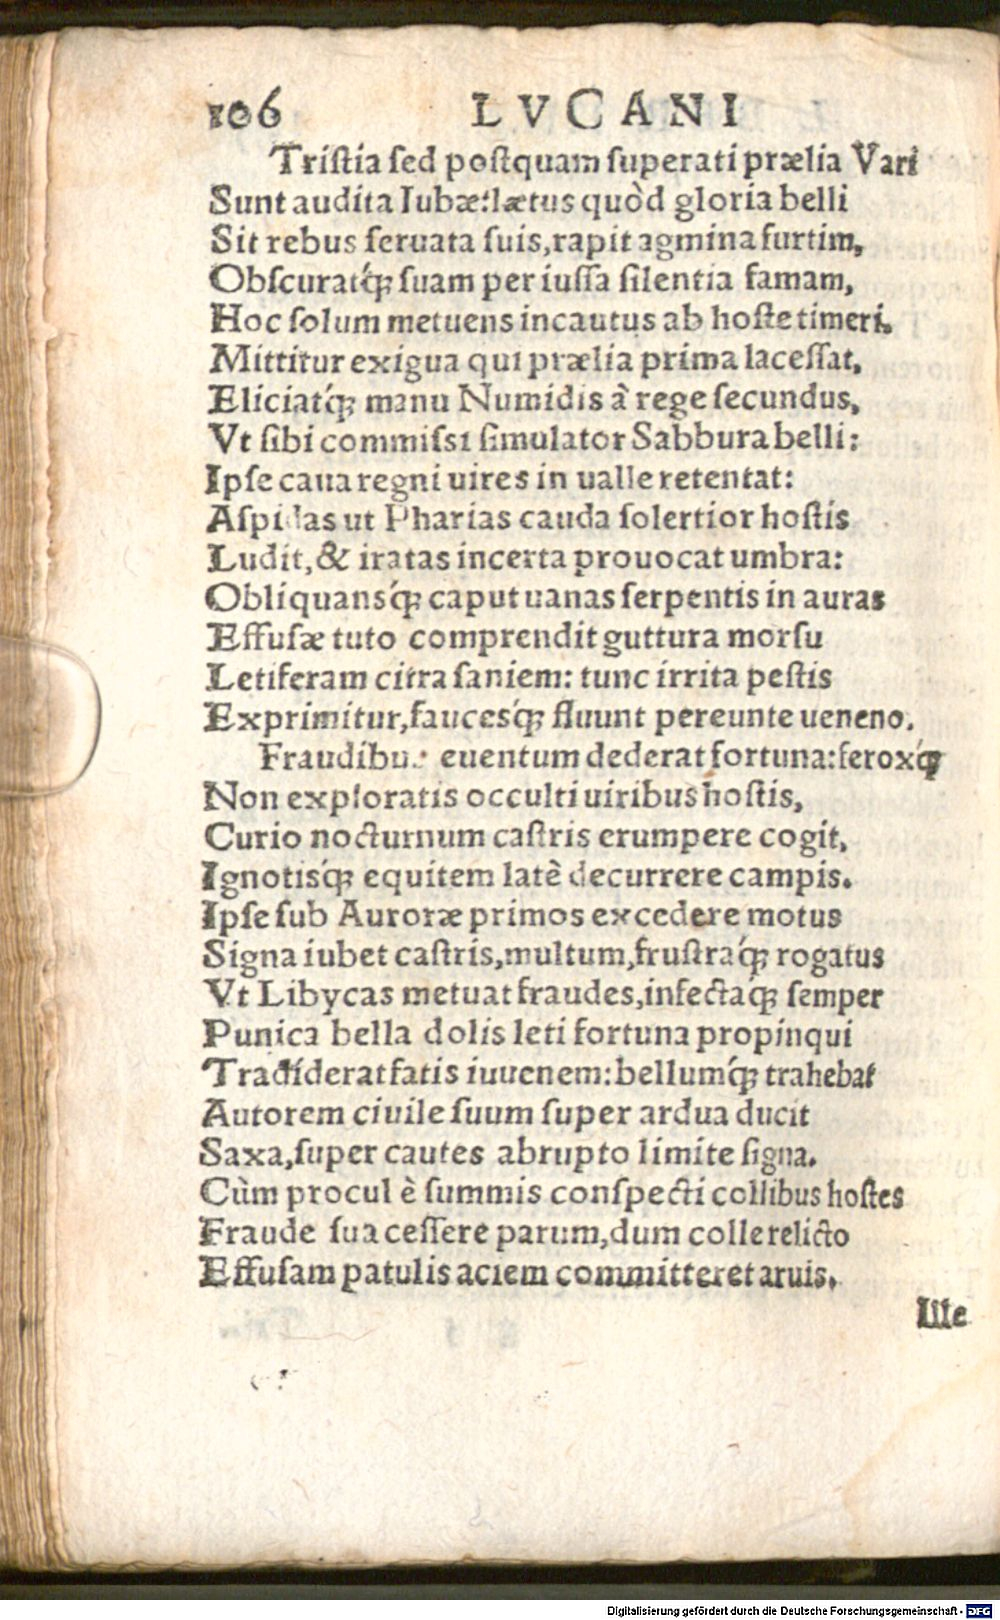 106 LVCANI
Tristia sed postquam superati prælia Vari
Sunt audita Iubæ: lætus quòd gloria belli
Sit rebus seruata suis, rapit agmina furtim,
Obscuratq́; suam per iussa silentia famam,
Hoc solum metuens incautus ab hoste timeri.
Mittitur exigua qui prælia prima lacessat,
Eliciatq́; manu Numidis à rege secundus,
Vt sibi commissi simulator Sabbura belli:
Ipse caua regni uires in ualle retentat:
Aspidas ut Pharias cauda solertior hostis
Ludit, & iratas incerta prouocat umbra:
Obliquansq́; caput uanas serpentis in auras
Effusæ tuto comprendit guttura morsu
Letiferam citra saniem: tunc irrita pestis
Exprimitur, faucesq́; fluunt pereunte ueneno.
Fraudibus euentum dederat fortuna: feroxq́;
Non exploratis occulti uiribus hostis,
Curio nocturnum castris erumpere cogit,
Ignotisq́; equitem latè decurrere campis.
Ipse sub Auroræ primos excedere motus
Signa iubet castris, multum, frustraq́; rogatus
Vt Libycas metuat fraudes, infectaq́; semper
Punica bella dolis leti fortuna propinqui
Tradiderat fatis iuuenem: bellumq́; trahebat
Autorem ciuile suum super ardua ducit
Saxa, super cautes abrupto limite signa.
Cùm procul è summis conspecti collibus hostes
Fraude sua cessere parum, dum colle relicto
Effusam patulis aciem committeret aruis.
Ille
Digitalisierung gefördert durch die Deutsche Forschungsgemeinschaft - DFG